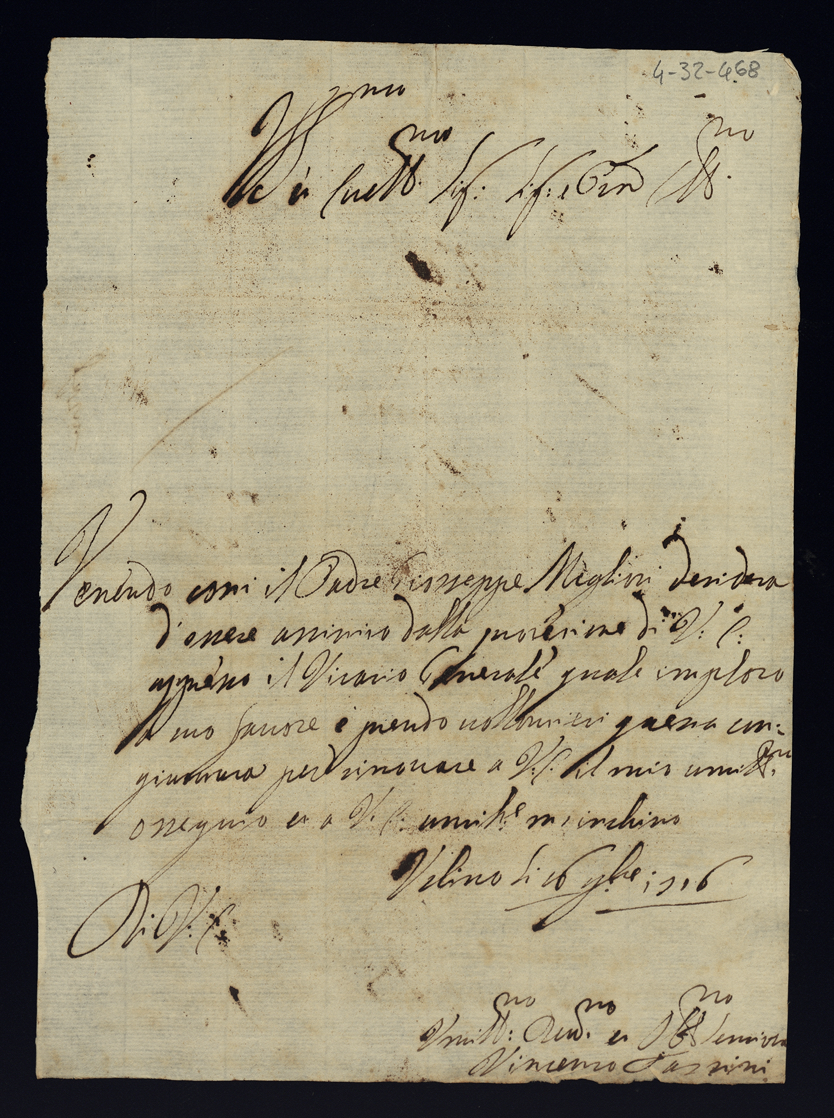 4-32-468
Ill.mo
et Ecell.mo Sig: Sig: e Pron Coll.mo
Venendo costi il Padre Gioseppe Migliori desidera
d'essere assistito dalla protezione di V: E:
appresso il Vicario Generale quale imploro
a suo favore e prendo volontieri questa con=
giuntura per rinovare a V: E: il mio umill.mo
ossequio et a V: E: umilm.e m'inchino
li 16 9bre 1716
Di V: E:
Umill.mo Dev.mo et Obb.mo Servitore
Vincenzo Fassini